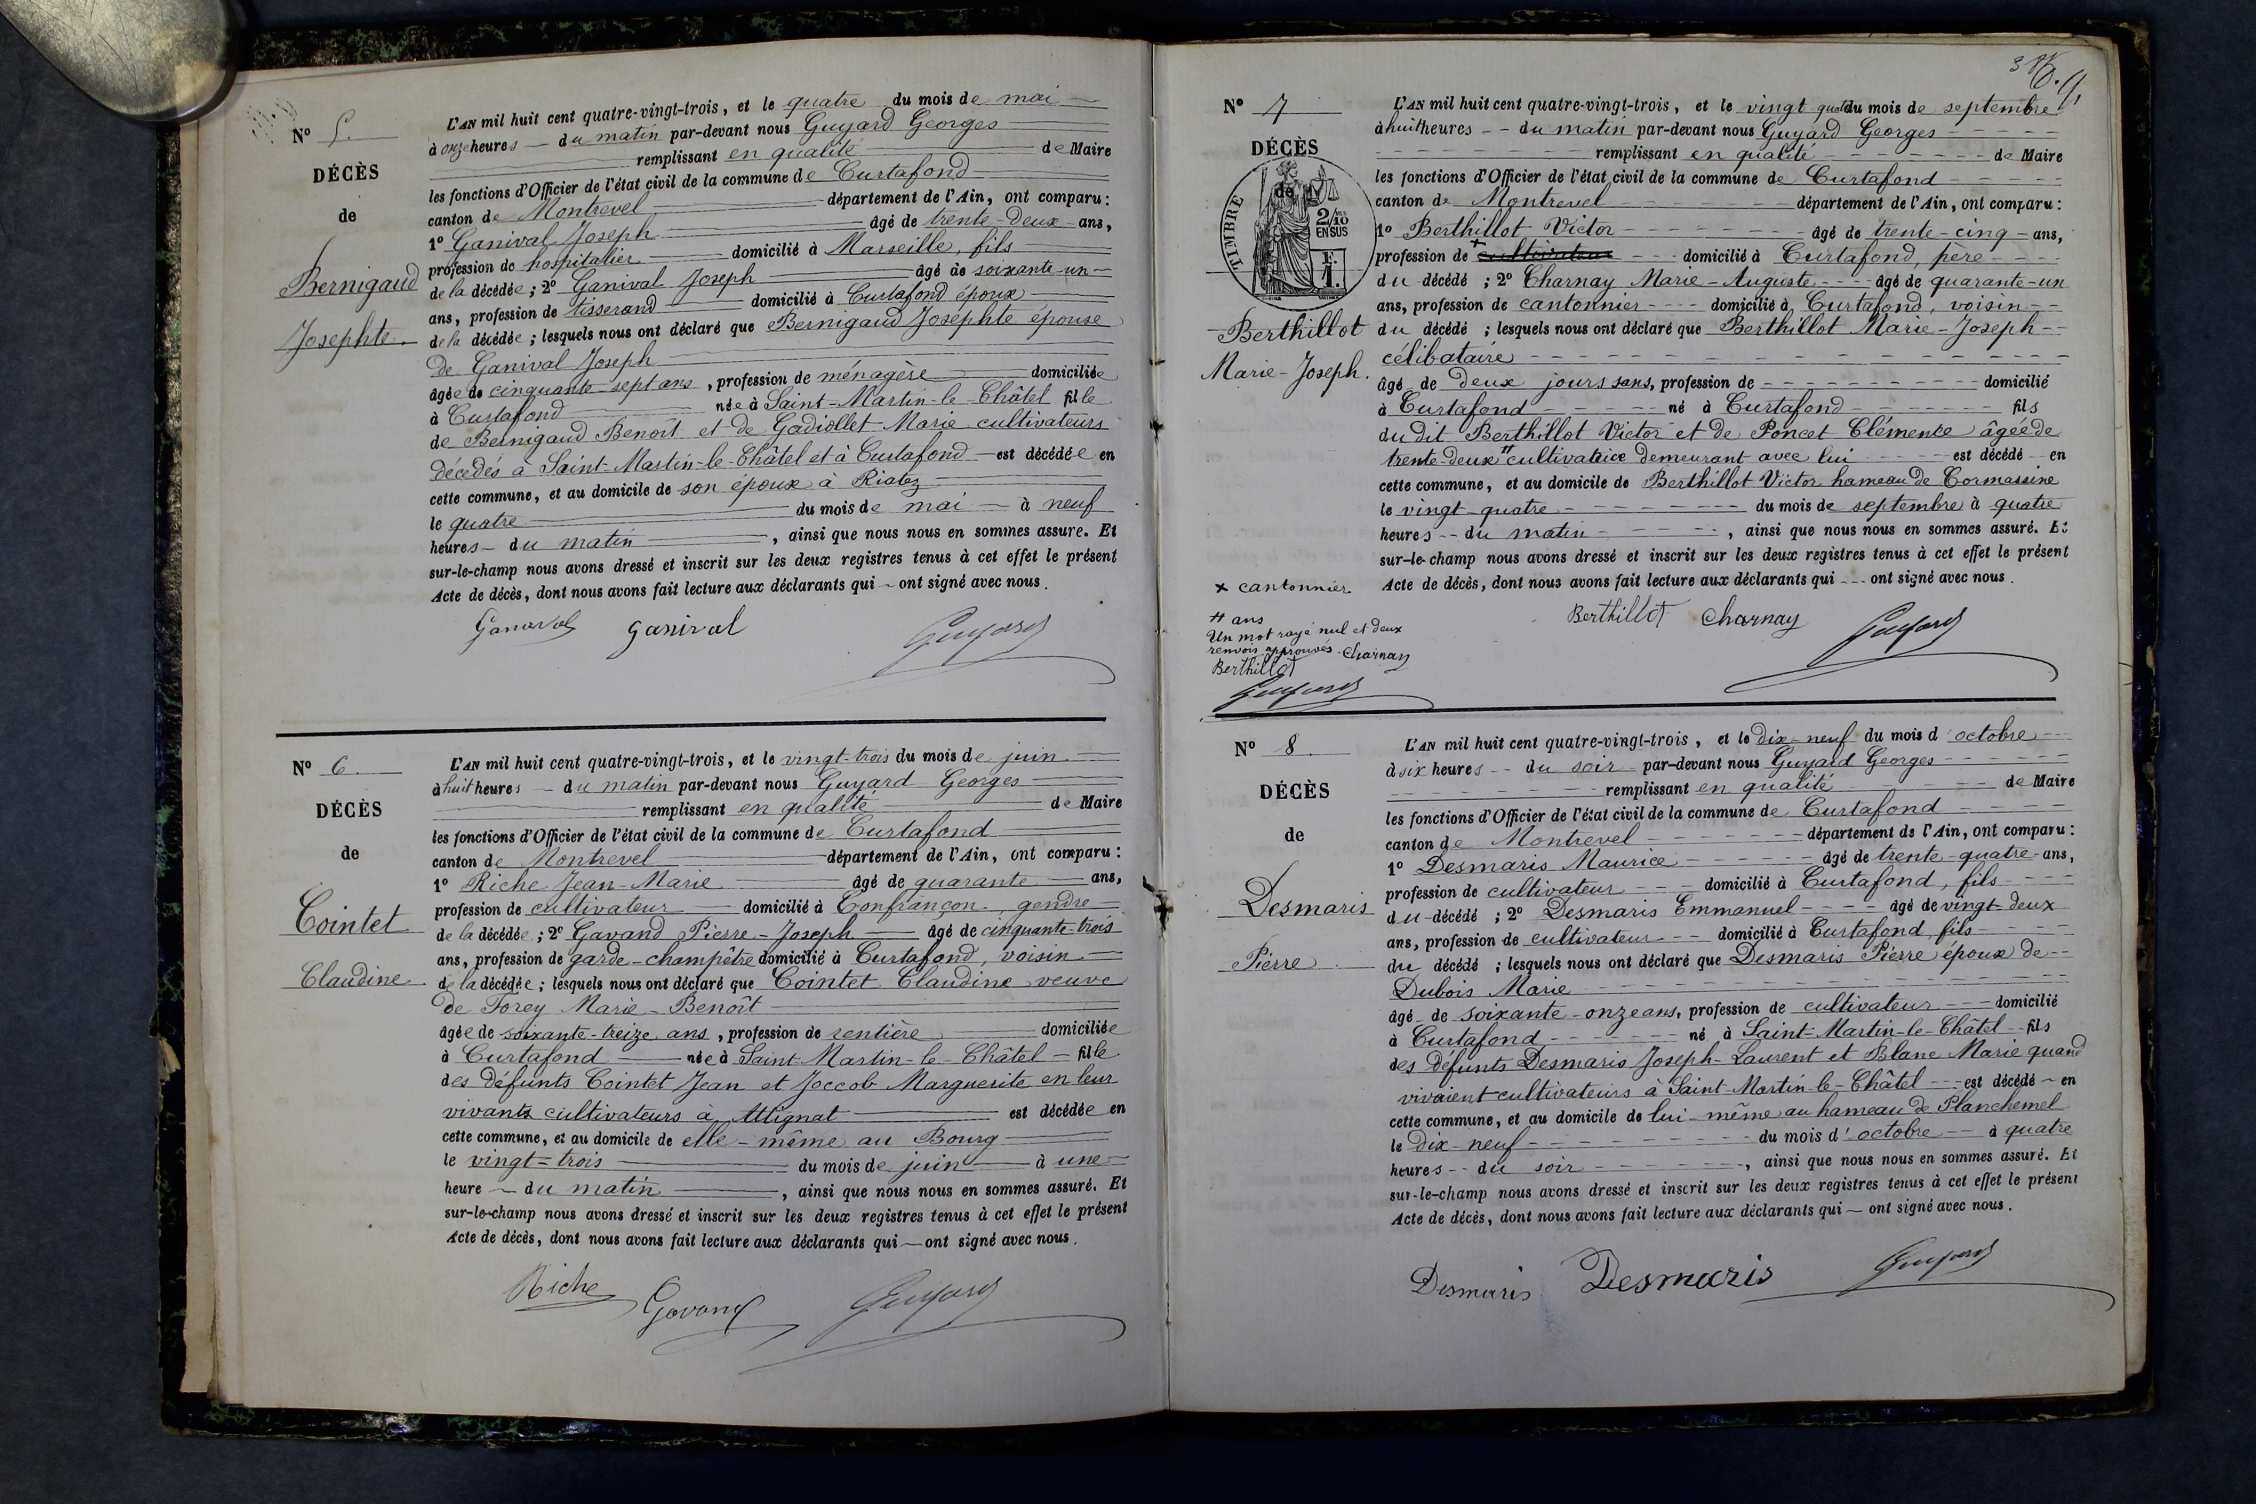 Nº 5.
DÉCÈS
de
Bernigaud
Josephte.
L'AN mil huit cent quatre-vingt-trois, et le quatre du mois de mai
à onze heures du matin par-devant nous Guyard Georges
remplissant en qualité de Maire
les fonctions d'Officier de l'état civil de la commune de Curtafond
canton de Montrevel département de l'Ain, ont comparu :
1º Ganival Joseph âgé de trente-deux ans,
profession de hospitalier domicilié à Marseille, fils
de la décédée ; 2º Ganival Joseph âgé de soixante-un
ans, profession de tisserand domicilié à Curtafond époux
de la décédée ; lesquels nous ont déclaré que Bernigaud Joséphte épouse
de Ganival Joseph
âgée de cinquante-sept ans, profession de ménagère domiciliée
à Curtafond née à Saint-Martin-le-Châtel fille
de Bernigaud Benoît et de Gadiollet Marie cultivateurs
décédés à Saint-Martin-le-Châtel et à Curtafond est décédée en
cette commune, et au domicile de son époux à Riolez
le quatre du mois de mai à neuf
heures du matin, ainsi que nous nous en sommes assuré. Et
sur-le-champ nous avons dressé et inscrit sur les deux registres tenus à cet effet le présent
Acte de décès, dont nous avons fait lecture aux déclarants qui ont signé avec nous.
Ganival ganival Guyard
Nº 6.
DÉCÈS
de
Cointet
Claudine
L'AN mil huit cent quatre-vingt-trois, et le vingt-trois du mois de juin
à huit heures du matin par-devant nous Guyard Georges
remplissant en qualité de Maire
les fonctions d'Officier de l'état civil de la commune de Curtafond
canton de Montrevel département de l'Ain, ont comparu :
1º Riche Jean-Marie âgé de quarante ans,
profession de cultivateur domicilié à Confrançon gendre
de la décédée ; 2º Gavand Pierre-Joseph âgé de cinquante-trois
ans, profession de garde-champêtre domicilié à Curtafond, voisin
de la décédée ; lesquels nous ont déclaré que Cointet Claudine veuve
de Forey Marie-Benoît
âgée de soixante-treize ans, profession de rentière domiciliée
à Curtafond née à Saint Martin-le-Châtel fille
des défunts Cointet Jean et Joccob Marguerite en leur
vivants cultivateurs à Attignat est décédée en
cette commune, et au domicile de elle-même au Bourg
le vingt-trois du mois de juin à une
heure du matin, ainsi que nous nous en sommes assuré. Et
sur-le-champ nous avons dressé et inscrit sur les deux registres tenus à cet effet le présent
Acte de décès, dont nous avons fait lecture aux déclarants qui ont signé avec nous.
Riche Gavand Guyard
Nº 7
DÉCÈS
de
TIMBRE
2/10 EN SUS
Berthillot
Marie-Joseph.
L'AN mil huit cent quatre-vingt-trois, et le vingt quatre du mois de septembre
à huit heures du matin par-devant nous Guyard Georges
remplissant en qualité de Maire
les fonctions d'Officier de l'état civil de la commune de Curtafond
canton de Montrevel département de l'Ain, ont comparu :
1º Berthillot Victor âgé de trente-cinq ans,
profession de + cultivateur domicilié à Curtafond, père
du décédé ; 2º Charnay Marie-Auguste âgé de quarante-un
ans, profession de cantonnier domicilié à Curtafond, voisin
du décédé ; lesquels nous ont déclaré que Berthillot Marie-Joseph
célibataire
âgé de deux jours sans, profession de domicilié
à Curtafond né à Curtafond fils
du dit Berthillot Victor et de Poncet Clémente âgée de
trente-deux # cultivatrice demeurant avec lui est décédé en
cette commune, et au domicile de Berthillot Victor hameau de Cormassine
le vingt-quatre du mois de septembre à quatre
heures du matin, ainsi que nous nous en sommes assuré. Et
sur-le-champ nous avons dressé et inscrit sur les deux registres tenus à cet effet le présent
Acte de décès, dont nous avons fait lecture aux déclarants qui ont signé avec nous.
+ cantonnier
# ans
Un mot rayé nul et deux
renvois approuvés Charnay
Berthillot
Guyard
Berthillot Charnay Guyard
Nº 8
DÉCÈS
de
Desmaris
Pierre
L'AN mil huit cent quatre-vingt-trois, et le dix-neuf du mois d'octobre
à six heures du soir par-devant nous Guyard Georges
remplissant en qualité de Maire
les fonctions d'Officier de l'état civil de la commune de Curtafond
canton de Montrevel département de l'Ain, ont comparu :
1º Desmaris Maurice âgé de trente-quatre ans,
profession de cultivateur domicilié à Curtafond, fils
du décédé ; 2º Desmaris Emmanuel âgé de vingt-deux
ans, profession de cultivateur domicilié à Curtafond, fils
du décédé ; lesquels nous ont déclaré que Desmaris Pierre époux de
Dubois Marie
âgé de soixante-onze ans, profession de cultivateur domicilié
à Curtafond né à Saint-Martin-le-Châtel fils
des défunts Desmaris Joseph-Laurent et Blanc Marie quand
vivaient cultivateurs à Saint-Martin-le-Châtel est décédé en
cette commune, et au domicile de lui-même au hameau de Planchemel
le dix-neuf du mois d'octobre à quatre
heures du soir, ainsi que nous nous en sommes assuré. Et
sur-le-champ nous avons dressé et inscrit sur les deux registres tenus à cet effet le présent
Acte de décès, dont nous avons fait lecture aux déclarants qui ont signé avec nous.
Desmaris Desmaris Guyard